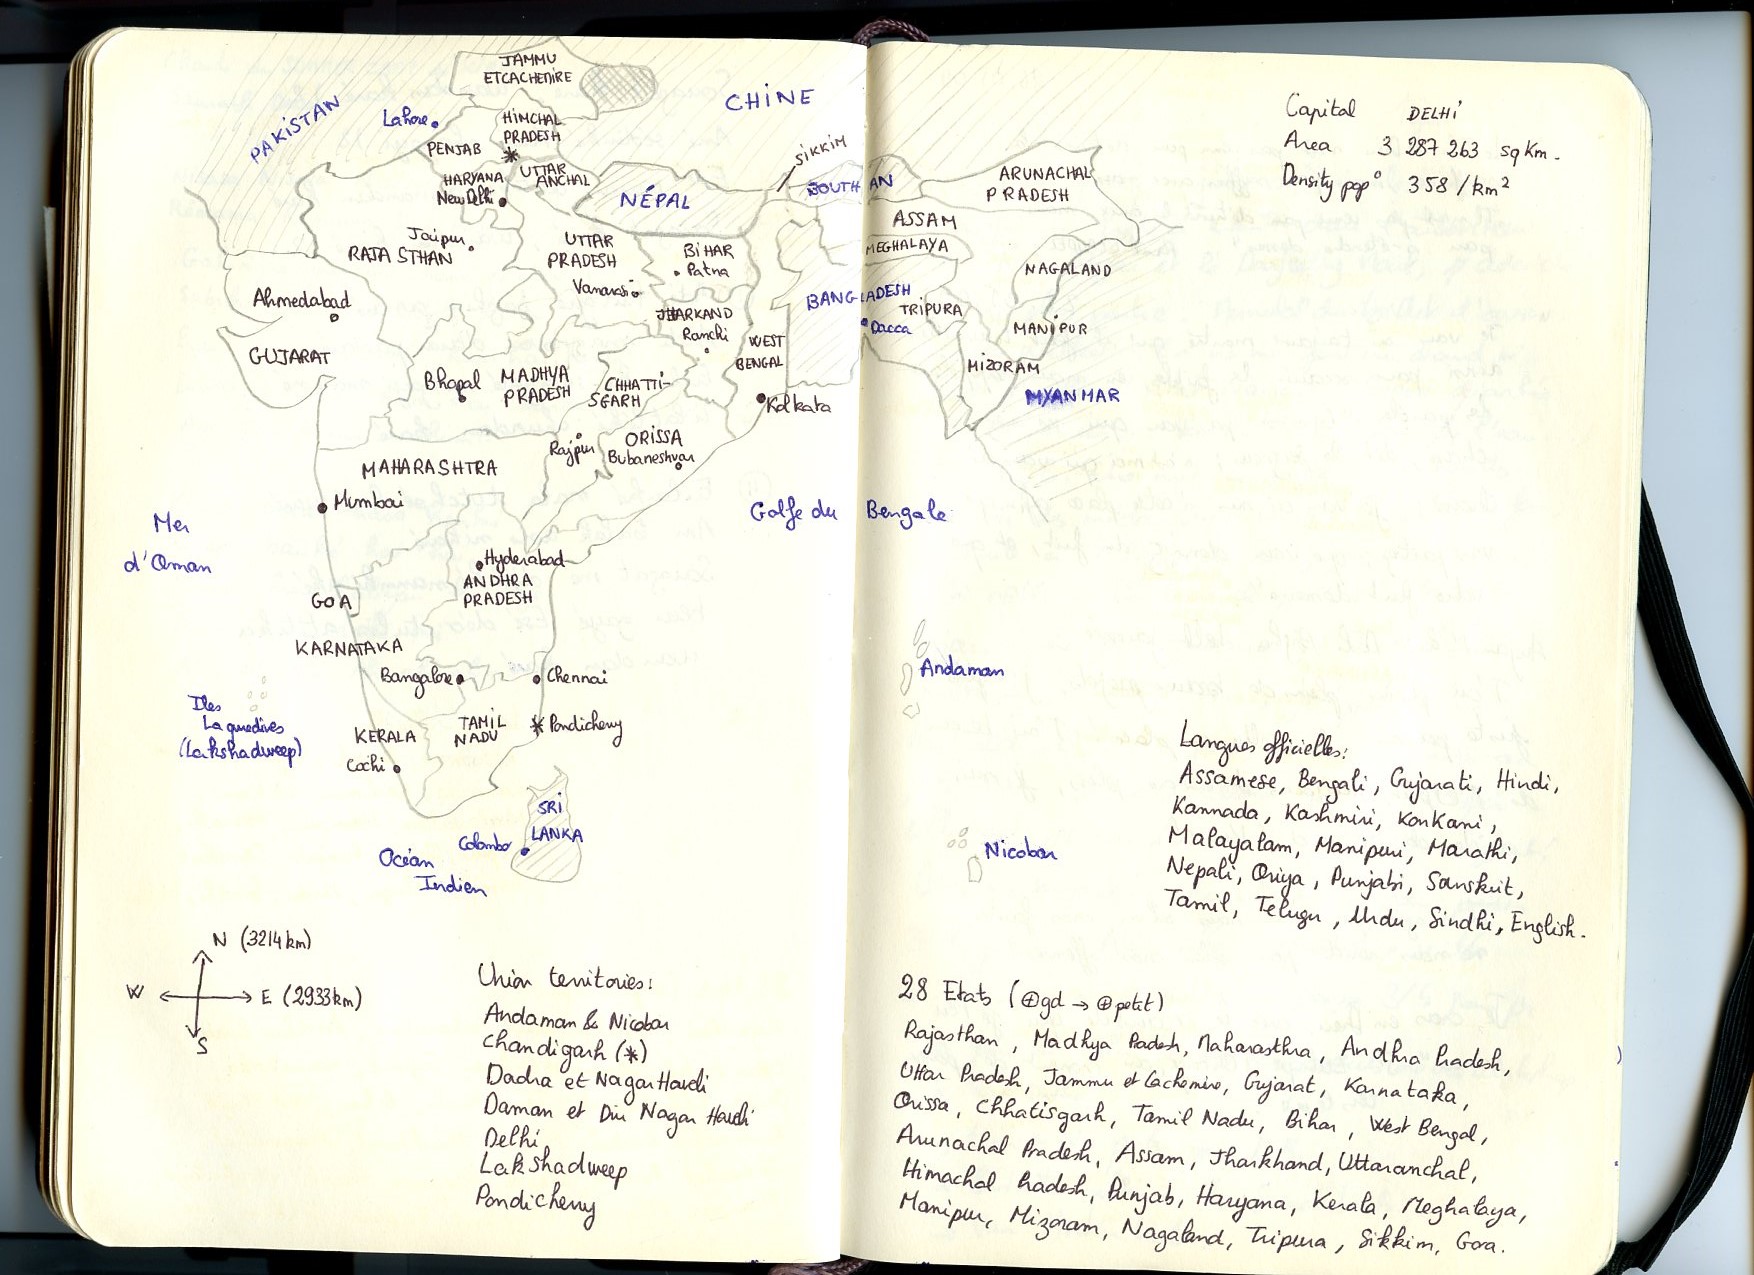 JAMMU
ETCACHEMIRE
CHINE
PAKISTAN
Lahore
HIMCHAL
PRADESH
PENJAB
*
HARYANA
New Delhi
UTTAR
ANCHAL
NÉPAL
SIKKIM
BOUTH AN
ARUNACHAL
PRADESH
ASSAM
MEGHALAYA
NAGALAND
Jaipur
RAJASTHAN
UTTAR
PRADESH
Varanasi
BIHAR
Patna
BANGLADESH
TRIPURA
Dacca
MANIPUR
MIZORAM
MYANMAR
Ahmedabad
GUJARAT
JHARKAND
Ranchi
WEST
BENGAL
Bhopal
MADHYA
PRADESH
CHHATTI-
SGARH
Kolkata
Rajpur
ORISSA
Bubaneshvar
MAHARASHTRA
Mumbai
Mer
d'Oman
Golfe du Bengale
Hyderabad
ANDHRA
PRADESH
GOA
KARNATAKA
Bangalore
Chennai
Iles
Laquedives
(Lakshadweep)
KERALA
Cochi
TAMIL
NADU
* Pondicherry
SRI
LANKA
Colombo
Océan
Indien
Andaman
Nicobar
N (3214km)
W
E (2933km)
S
Union territories:
Andaman & Nicobar
Chandigarh (*)
Dadra et Nagar Haveli
Daman et Diu Nagar Haveli
Delhi
Lakshadweep
Pondicherry
Capital DELHI
Area 3 287 263 sqKm.
Density pop° 358/km²
Langues officielles:
Assamese, Bengali, Gujarati, Hindi,
Kannada, Kashmiri, Konkani,
Malayalam, Manipuri, Marathi,
Nepali, Oriya, Punjabi, Sanskrit,
Tamil, Telugu, Urdu, Sindhi, English.
28 Etats (⊕gd → ⊕petit)
Rajasthan, Madhya Pradesh, Maharasthra, Andhra Pradesh,
Uttar Pradesh, Jammu et Cachemire, Gujarat, Karnataka,
Orissa, Chhatisgarh, Tamil Nadu, Bihar, West Bengal,
Arunachal Pradesh, Assam, Jharkhand, Uttaranchal,
Himachal Pradesh, Punjab, Haryana, Kerala, Meghalaya,
Manipur, Mizoram, Nagaland, Tripura, Sikkim, Goa.